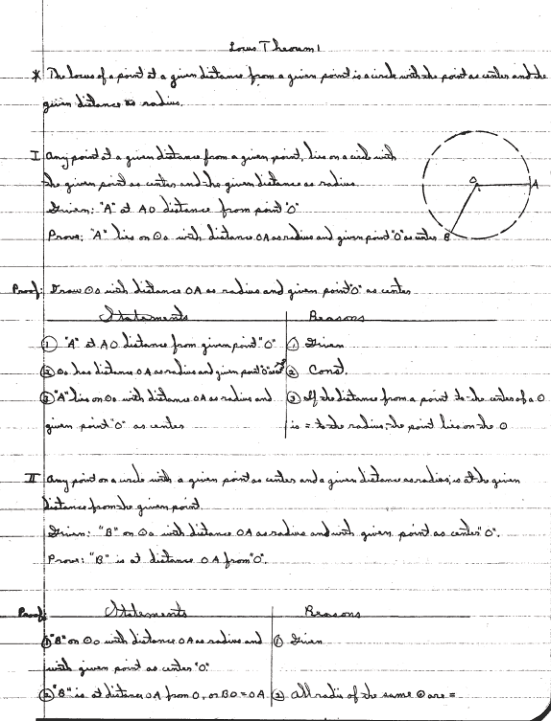 Locus Theorem 1
* The locus of a point at a given distance from a given point is a circle with the point as center and the
given distance as radius.
I Any point at a given distance from a given point, lies on a circle with
the given point as center and the given distance as radius.
Given: "A" at AO distance from point "O"
Prove: "A" lies on ⊙o with distance OA as radius and given point "O" as center
O A B
Proof: Draw ⊙o with distance OA as radius and given point "O" as center
Statements Reasons
① "A" at AO distance from given point "O" ① Given
② ⊙o has distance OA as radius and given point "O" as ② Const.
③ "A" lies on ⊙o with distance OA as radius and ③ If the distance from a point to the center of a ⊙
given point "O" as center is = to the radius, the point lies on the ⊙
II Any point on a circle with a given point as center and a given distance as radius, is at the given
distance from the given point
Given: "B" on ⊙o with distance OA as radius and with given point as center "O".
Prove: "B" is at distance OA from "O".
Proof: Statements Reasons
① "B" on ⊙o with distance OA as radius and ① Given
with given point as center "O"
② "B" is at distance OA from O, or BO = OA ② All radii of the same ⊙ are =